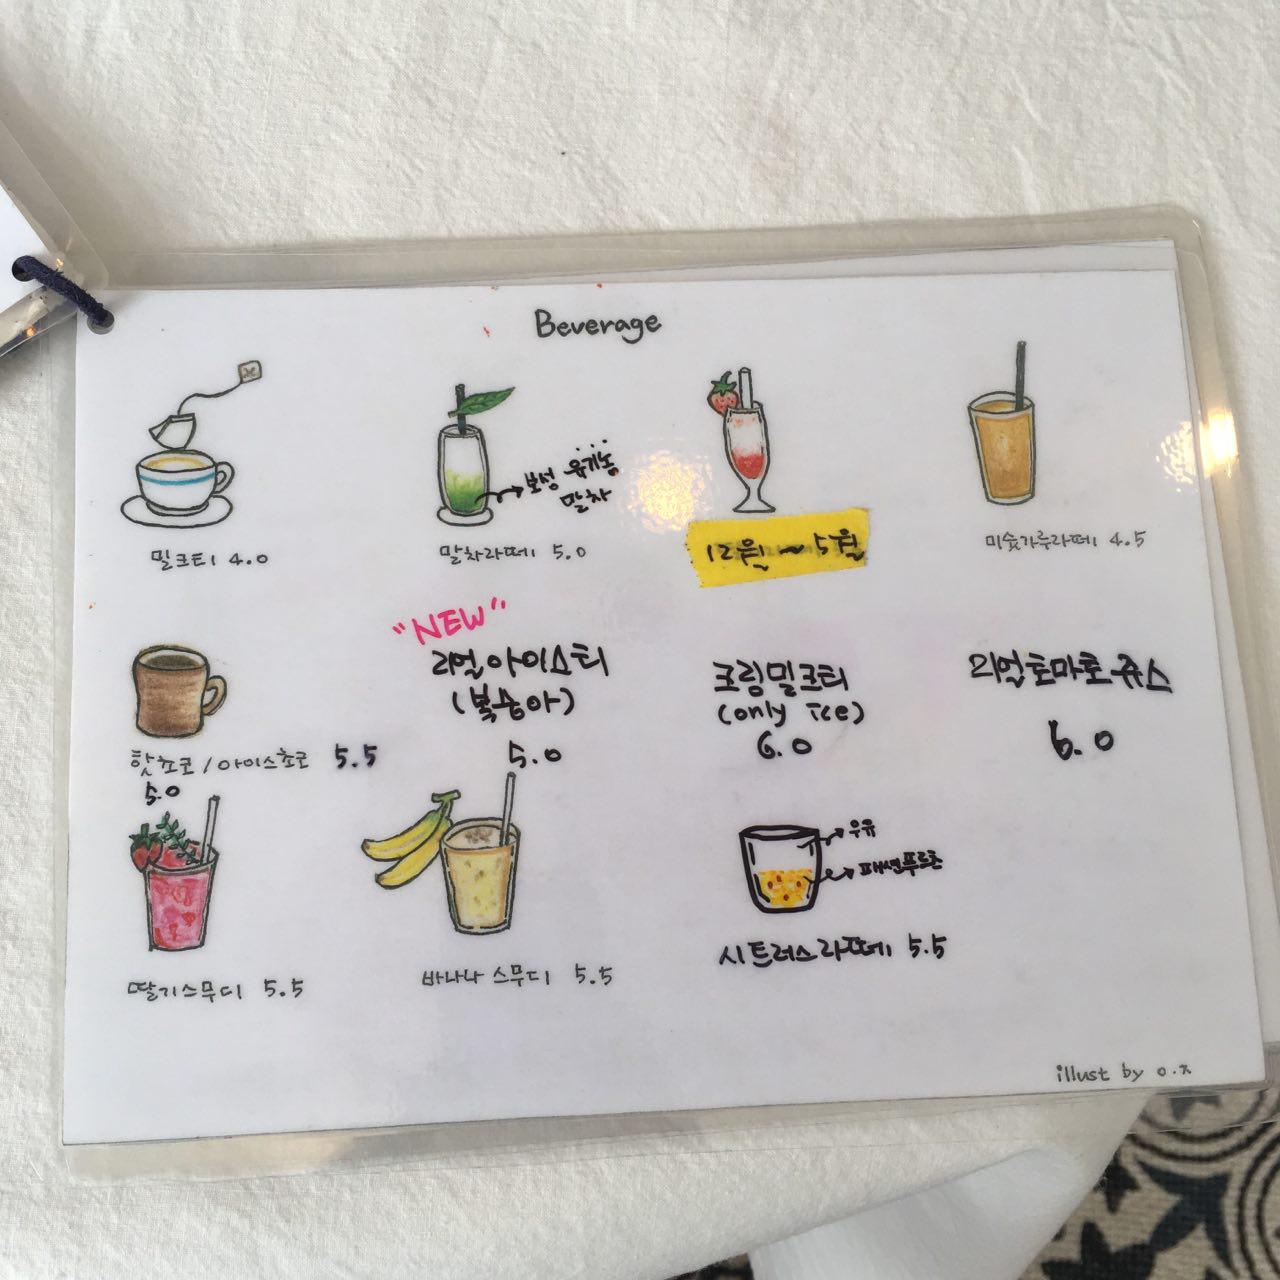 Beverage
보성 유기농
말차
밀크티 4.0
말차라떼 5.0
12월 ~ 5월
미숫가루라떼 4.5
"NEW"
리얼아이스티
(복숭아)
5.0
크림밀크티
(only Ice)
6.0
리얼토마토쥬스
6.0
핫쵸코/아이스쵸코 5.5
5.0
우유
패션푸르츠
딸기스무디 5.5
바나나 스무디 5.5
시트러스라떼 5.5
illust by o.ㅊ